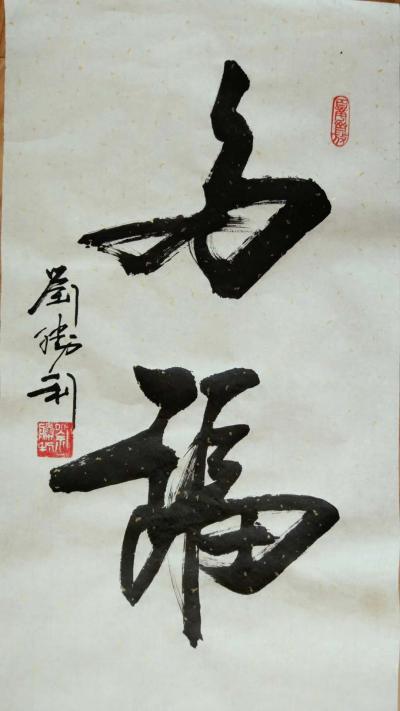 多福
劉勝利